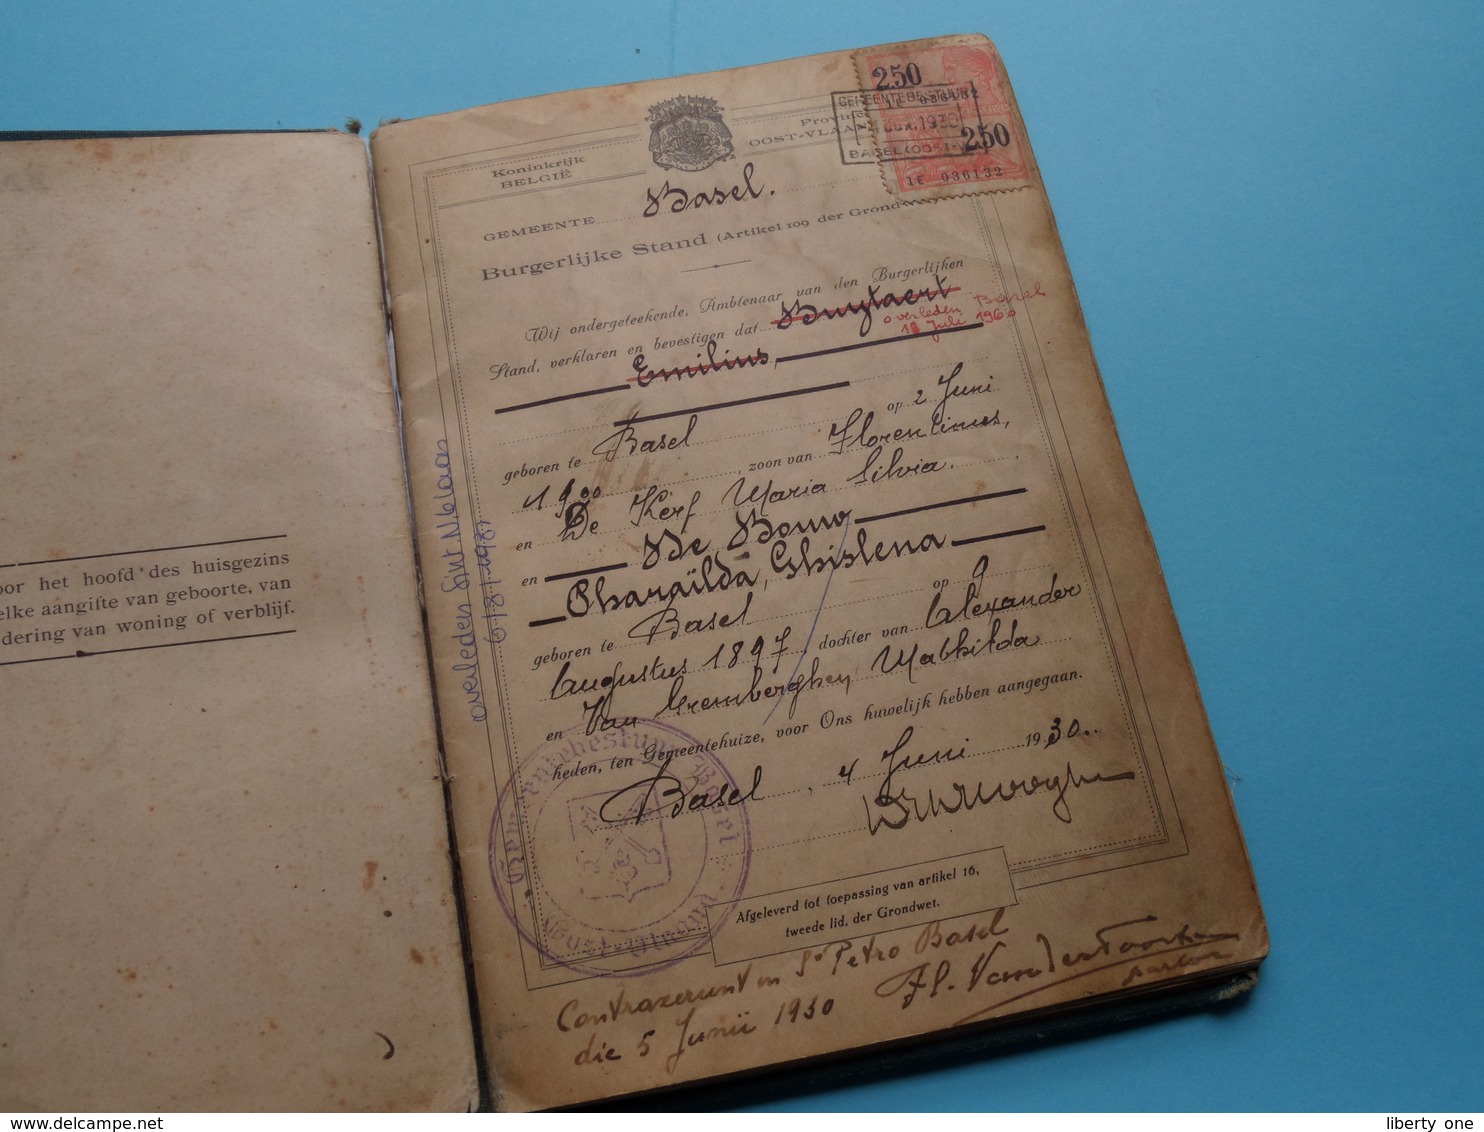 oor het hoofd des huisgezins
elke aangifte van geboorte, van
dering van woning of verblijf.
Koninkrijk
BELGIË
Provin
OOST-VLAAN
250
1E 036132
GEMEENTEBESTUUR
1930
BASEL (OOST-VL
250
1E 036132
GEMEENTE Basel.
Burgerlijke Stand (Artikel 109 der Grond
Wij ondergeteekende, Ambtenaar van den Burgerlijken
Stand, verklaren en bevestigen dat Buytaert
Emilius,
overleden Basel
18 Juli 1960
geboren te Basel op 2 Juni
1900, zoon van Florentinus,
en De Kerf Maria Silvia.
en De Bouw
Pharaïlda, Ghislena
geboren te Basel op 9
Augustus 1897, dochter van Alexander
en Van Gremberghen Mathilda
heden, ten Gemeentehuize, voor Ons huwelijk hebben aangegaan.
Basel, 4 Juni 1930.
overleden Sint Niklaas
6/8/1981
Gemeentebestuur Basel
Oost-Vlaand
Afgeleverd tot toepassing van artikel 16,
tweede lid, der Grondwet.
Contraxerunt in St Petro Basel
die 5 Junii 1930
Fl. Van der
pastor
liberty one